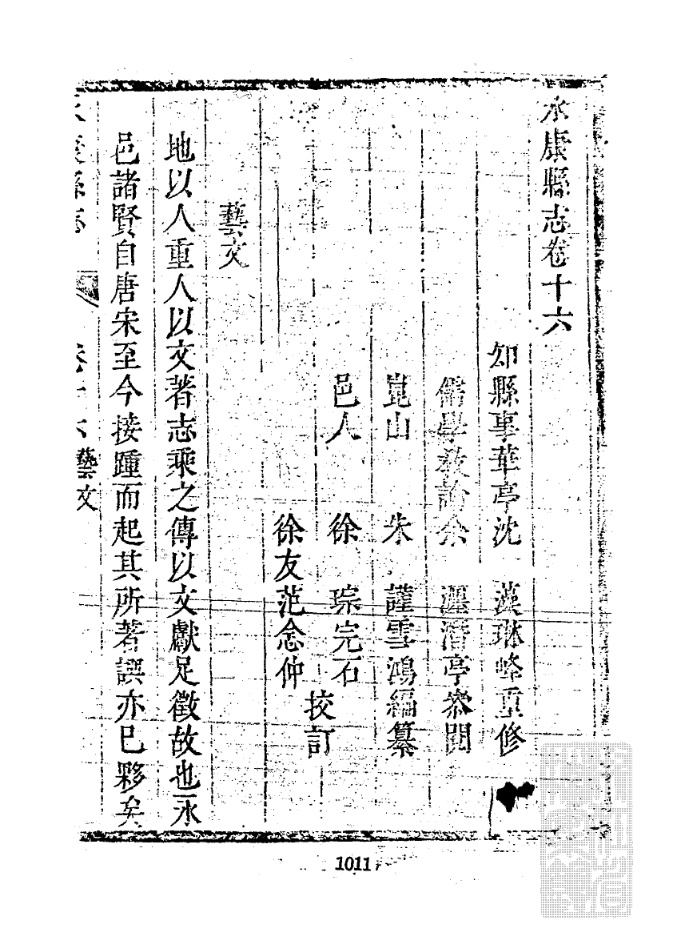 永康縣志卷十六
知縣事華亭沈 藻琳峰重修
儒學教諭余 瀍潛亭叅閱
崑山 朱 謹雪鴻編纂
邑人 徐 琮完石
徐友范念仲
挍訂
藝文
地以人重人以文著志乘之傳以文獻足徵故也永
邑諸賢自唐宋至今接踵而起其所著譔亦已夥矣
永康縣志 卷十六藝文
1011